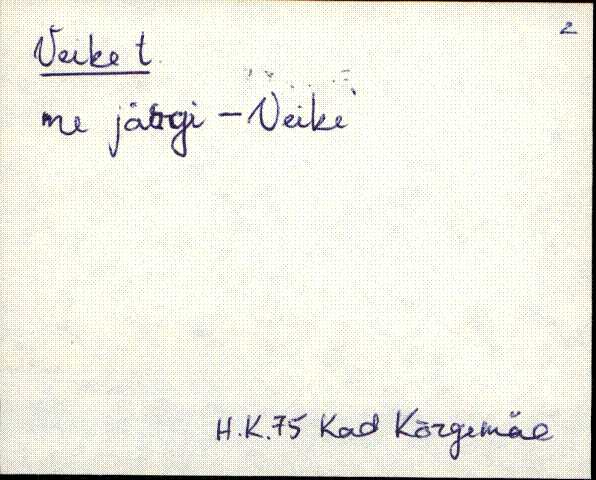 2
Veike t.
me järgi - Veike`
H.K.75 Kad Kõrgemäe